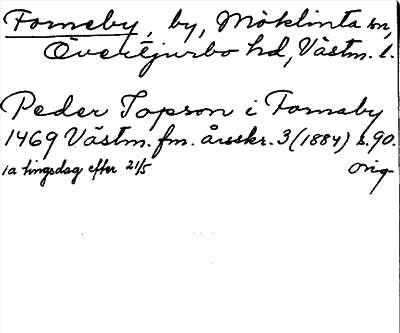 Forneby, by, Möklinta sn,
Övertjurbo hd, Västm. l.
Peder Jopson i Fornaby
1469 Västm. fm. årsskr. 3 (1884) s. 90.
1a tingsdag efter 21/5 orig